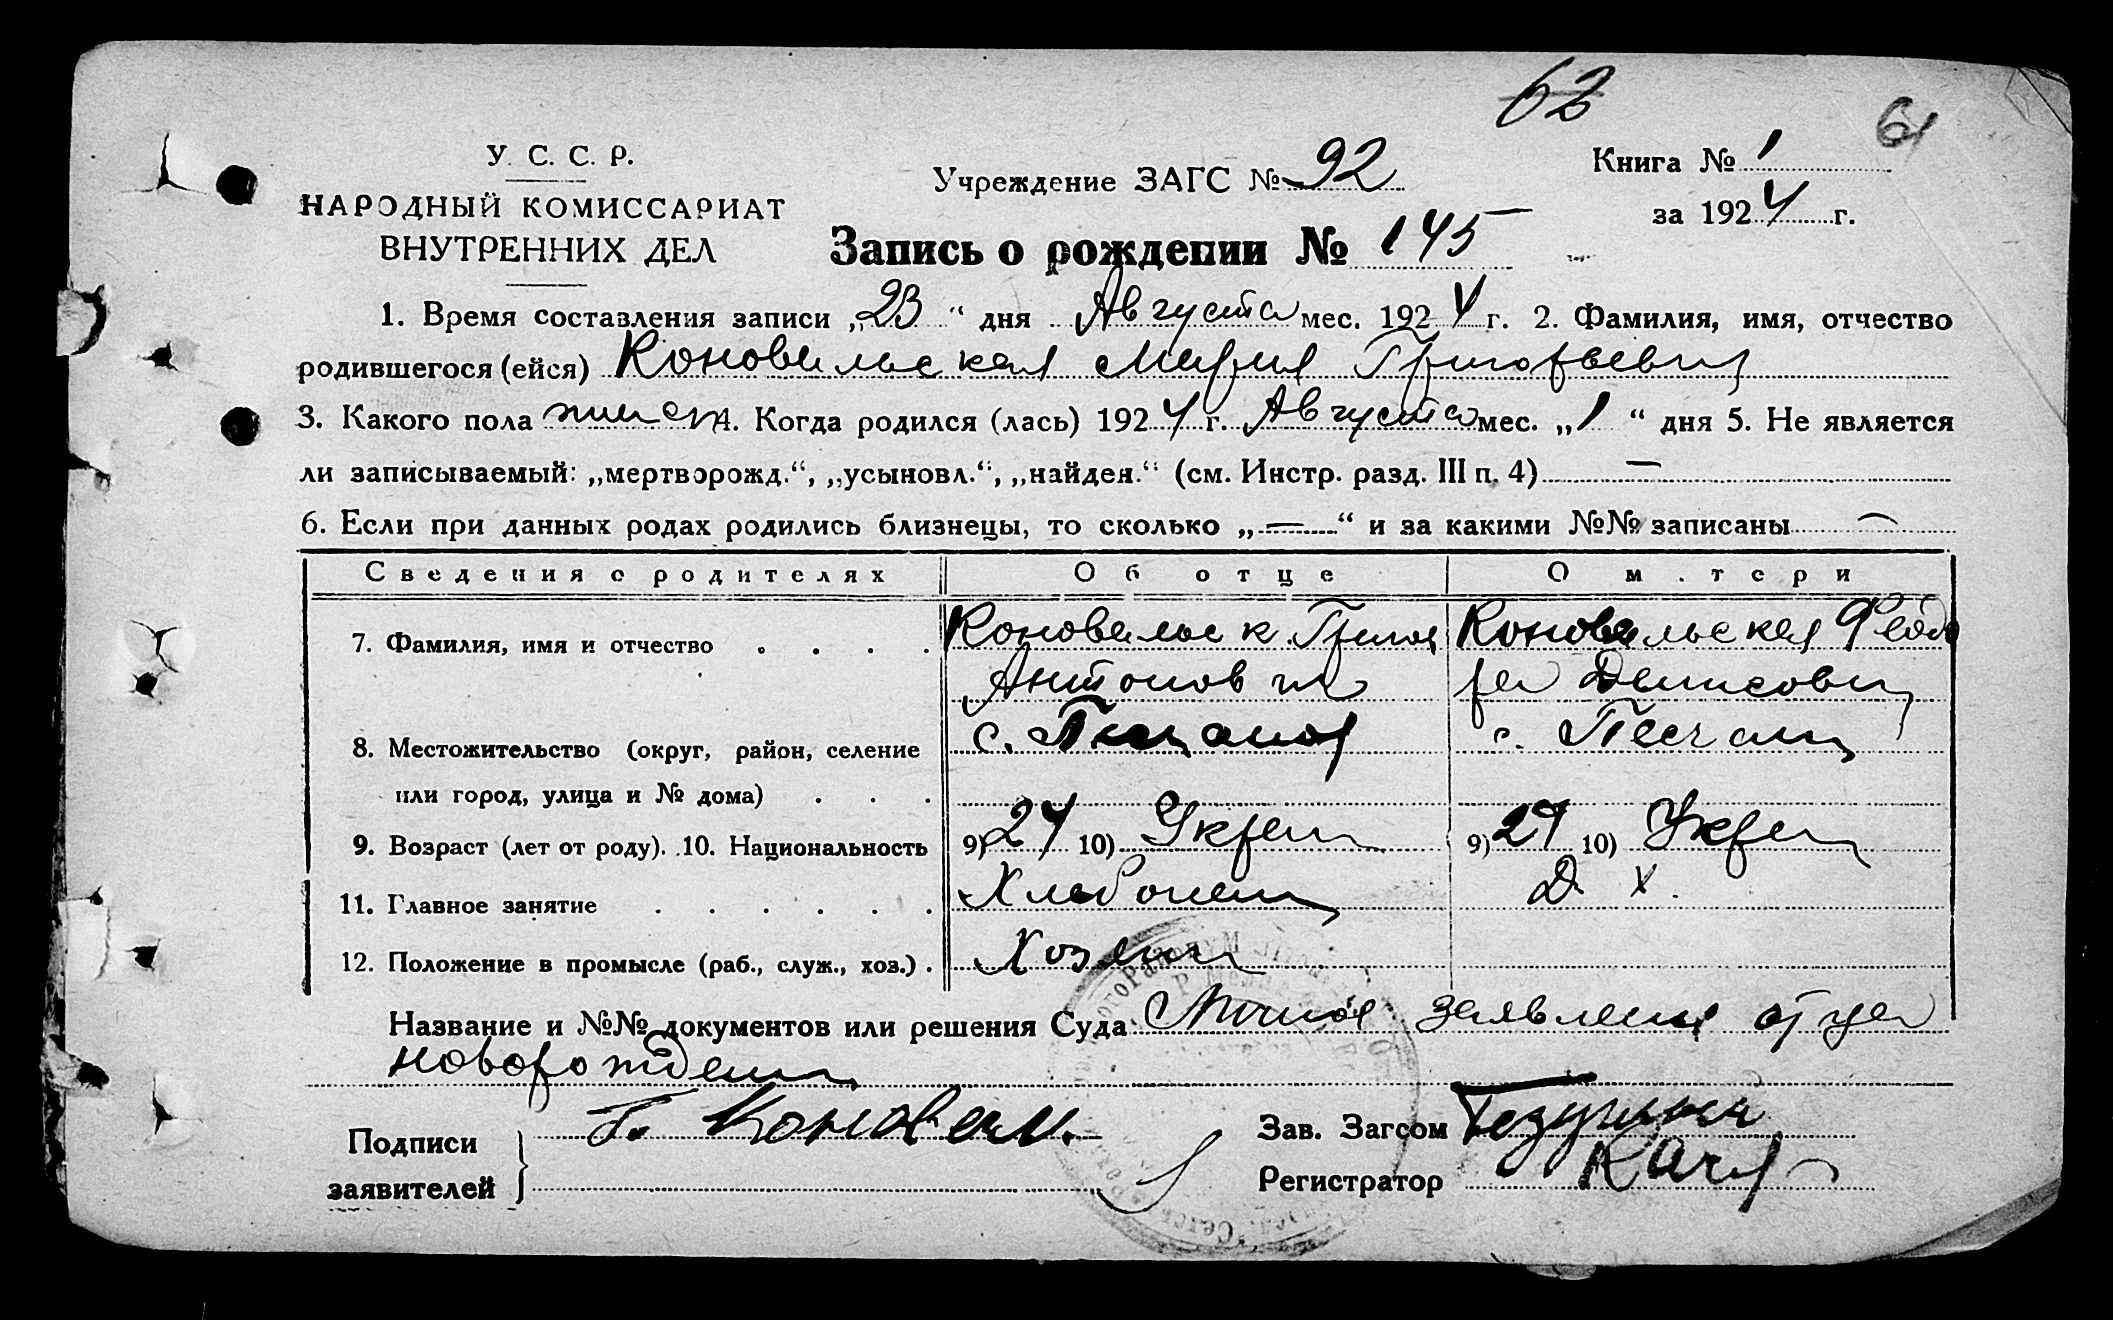 62
61
У. С. С. Р.
НАРОДНЫЙ КОМИССАРИАТ
ВНУТРЕННИХ ДЕЛ
Учреждение ЗАГС № 92
Книга № 1
за 1924 г.
Запись о рождении № 145
1. Время составления записи „23“ дня Августа мес. 1924 г. 2. Фамилия, имя, отчество
родившегося (ейся) Коновальская Мария Григорьевна
3. Какого пола женск 4. Когда родился (лась) 1924 г. Августа мес. „1“ дня 5. Не является
ли записываемый: „мертворожд.“, „усыновл.“, „найден.“ (см. Инстр. разд. III п. 4) —
6. Если при данных родах родились близнецы, то сколько „—“ и за какими №№ записаны —
Сведения о родителях Об отце О матери
7. Фамилия, имя и отчество . . . . Коновальск. Григор Коновальская Федо
Антонович ра Денисовн
8. Местожительство (округ, район, селение с. Песчаной с. Песчан
или город, улица и № дома) . . .
9. Возраст (лет от роду). 10. Национальность 9) 24 10) Украин 9) 24 10) Украин
11. Главное занятие . . . . . . Хлебопаш Д. х.
12. Положение в промысле (раб., служ., хоз.) . Хозяин
Название и №№ документов или решения Суда заявления отца
новорожден
Подписи Г. Коновал. Зав. Загсом
заявителей Регистратор